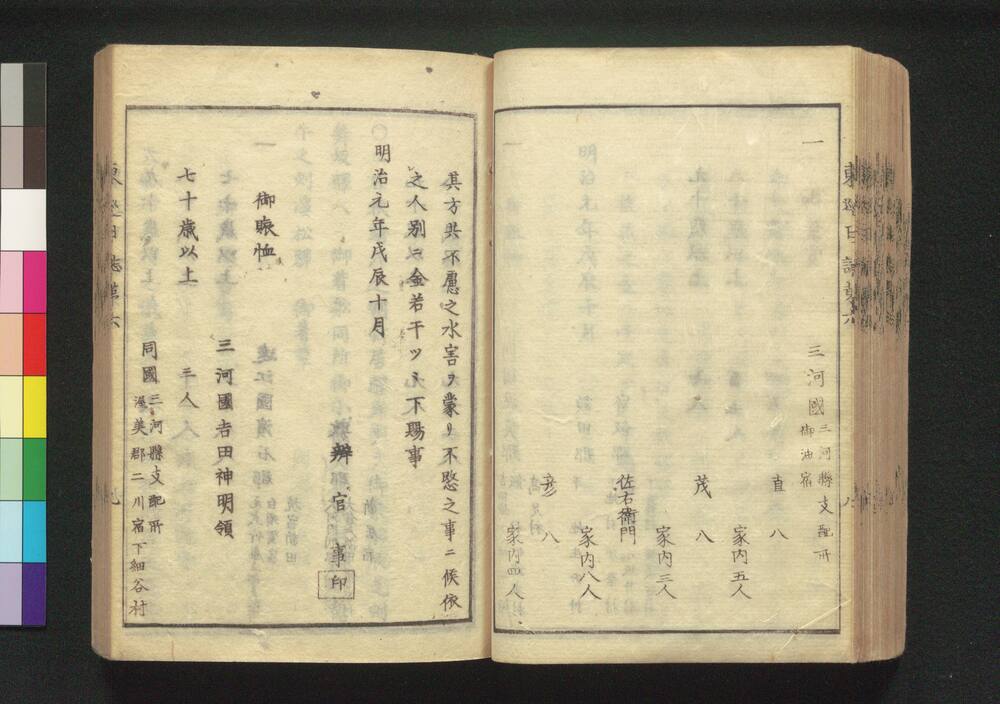 東巡日誌第六
八
一
三河國
三河縣支配所
御油宿
直八
家内五人
茂八
家内三人
佐右衛門
家内八人
彦八
家内四人
其方共不慮之水害ヲ蒙リ不愍之事ニ候依
之人別ニ金若干ツヽ下賜事
明治元年戊辰十月
辨官事
印
御賑恤
三河國吉田神明領
七十歳以上
三人
同國
三河縣支配所
渥美郡二川宿下細谷村
東巡日誌第六
九